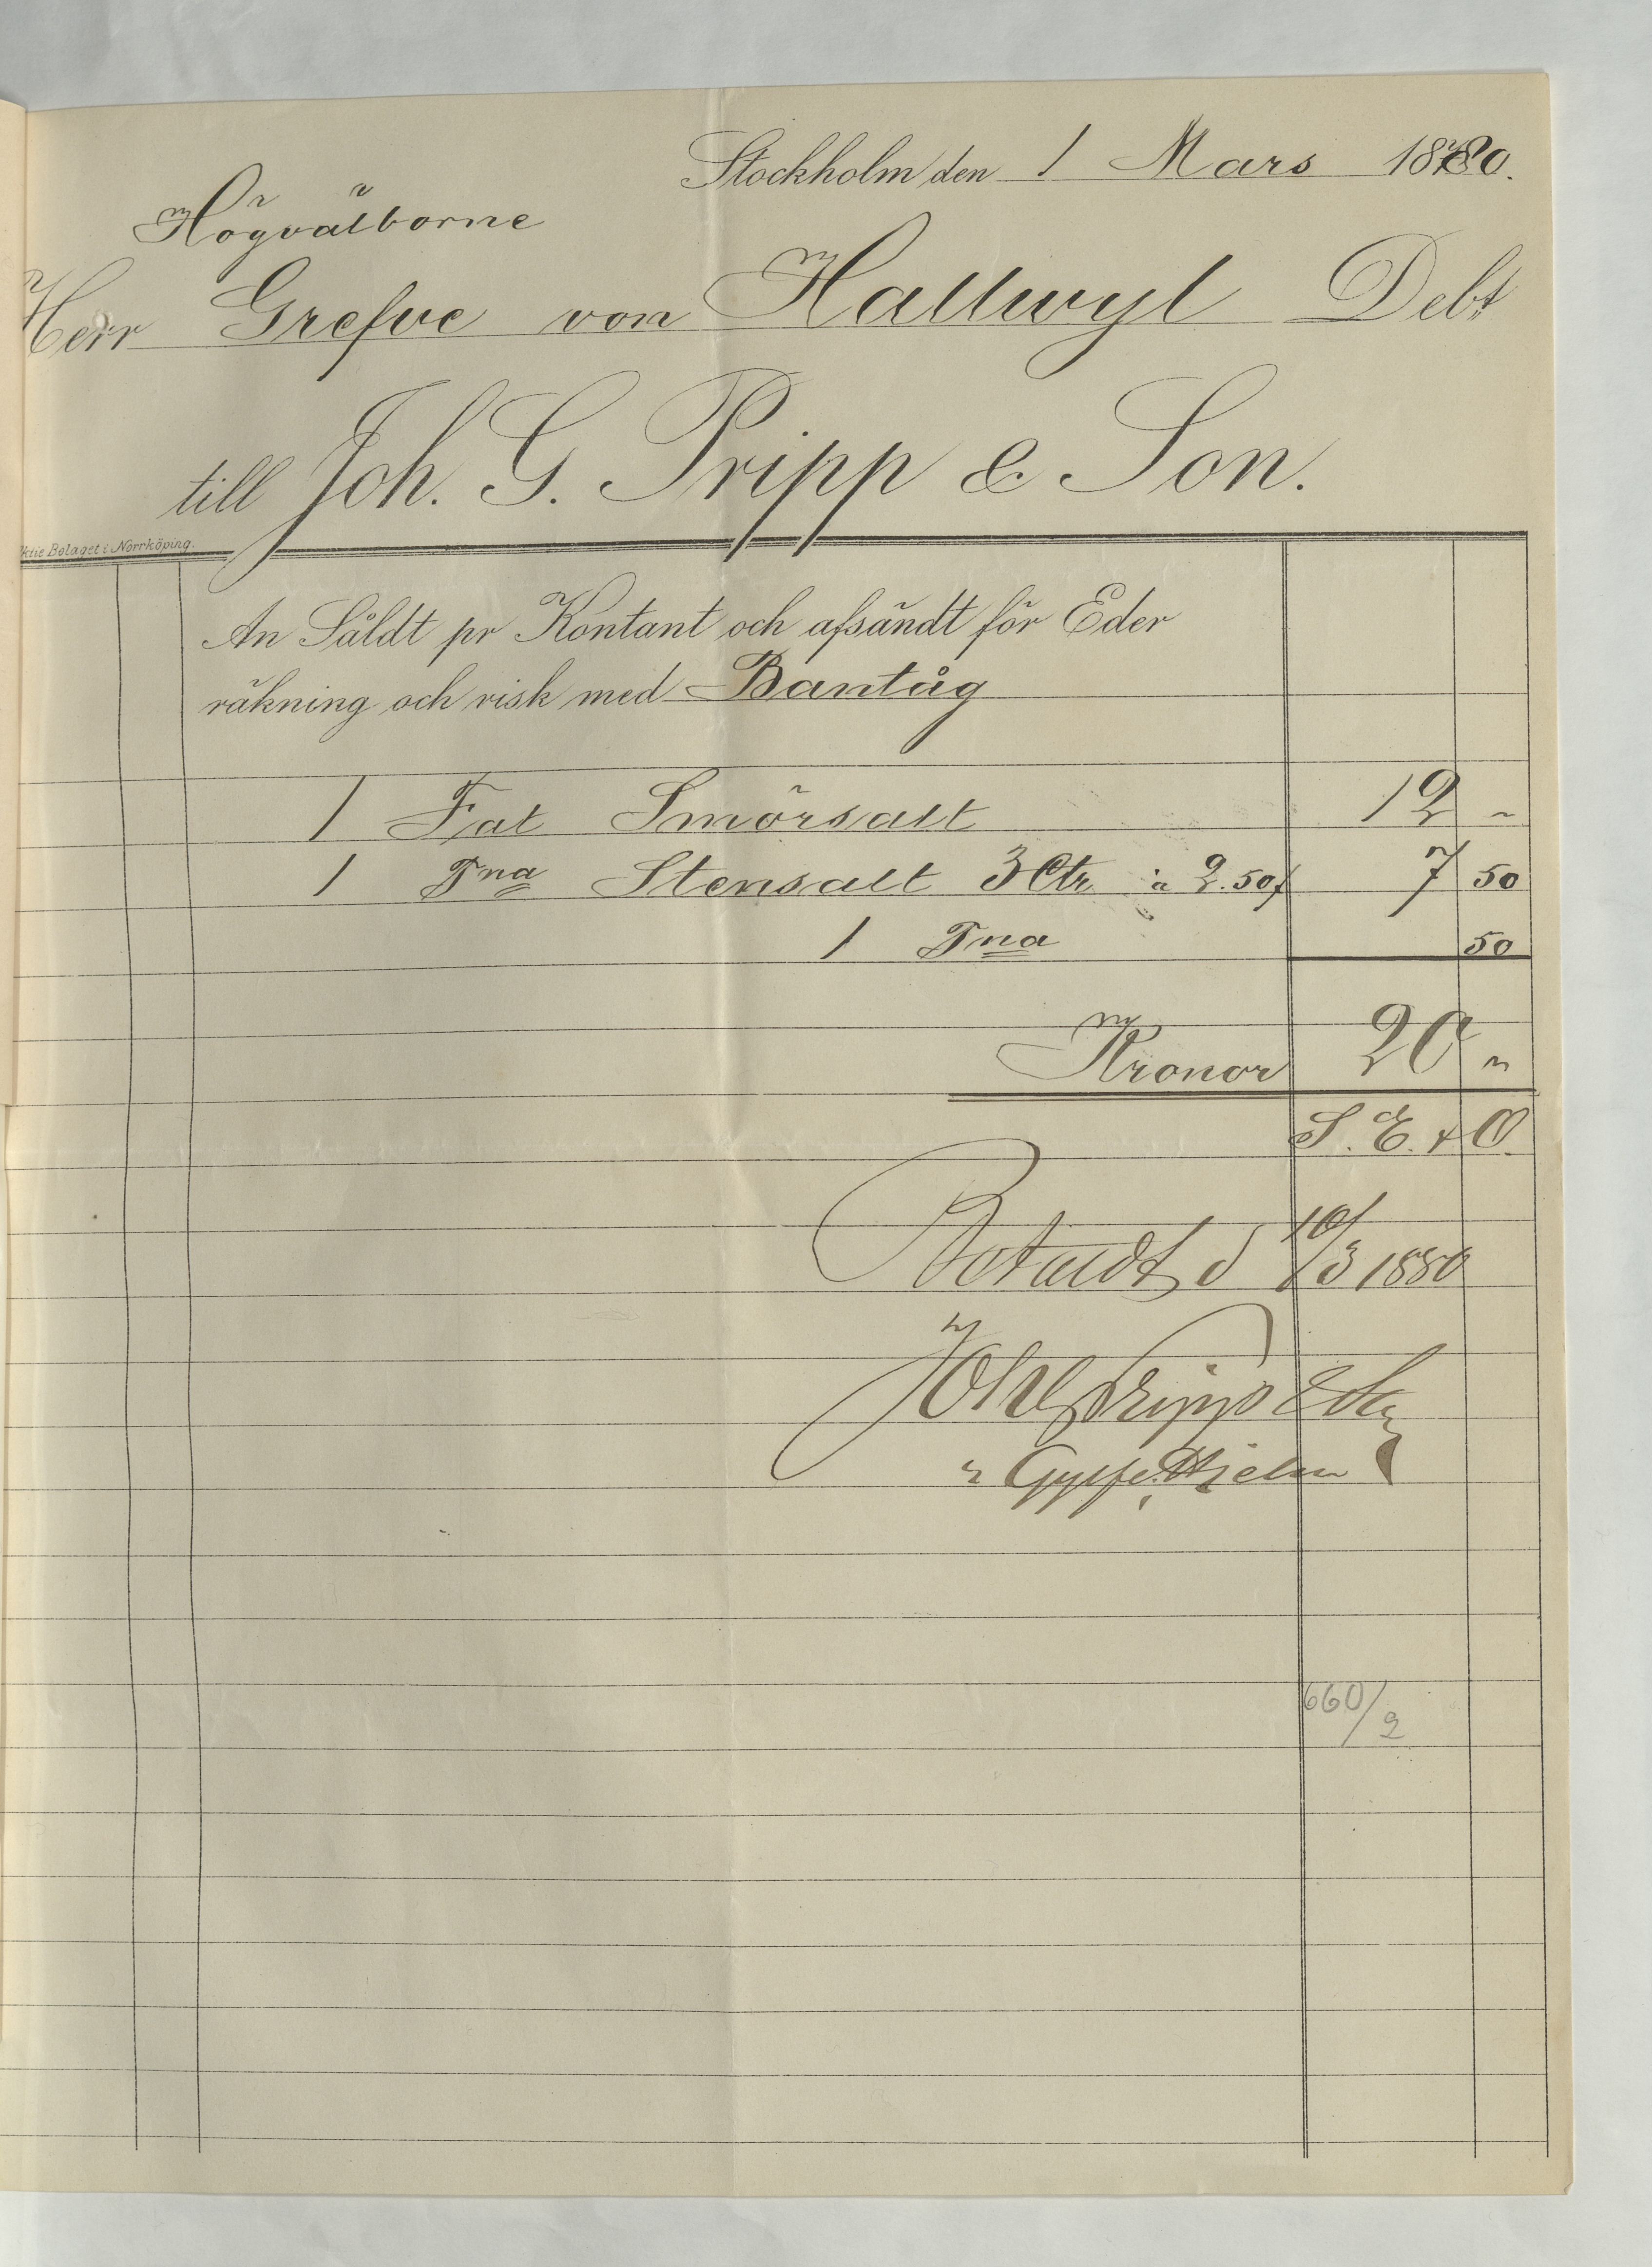 Stockholm den 1 Mars 1880.
Högvälborne
Herr Grefve von Hallwyl Debt
till Joh. G. Pripp & Son.
ktie Bolaget i Norrköping.
An Såldt pr Kontant och afsändt för Eder
räkning och risk med Bantåg
1 Fat Smörsalt 12 "
1 Tna Stensalt 3 Ctr à 2.50 7 50
1 Tna 50
Kronor 20 "
S. E. & O.
Betaldt d 10/3 1880
Joh G Pripp & Son
660/2